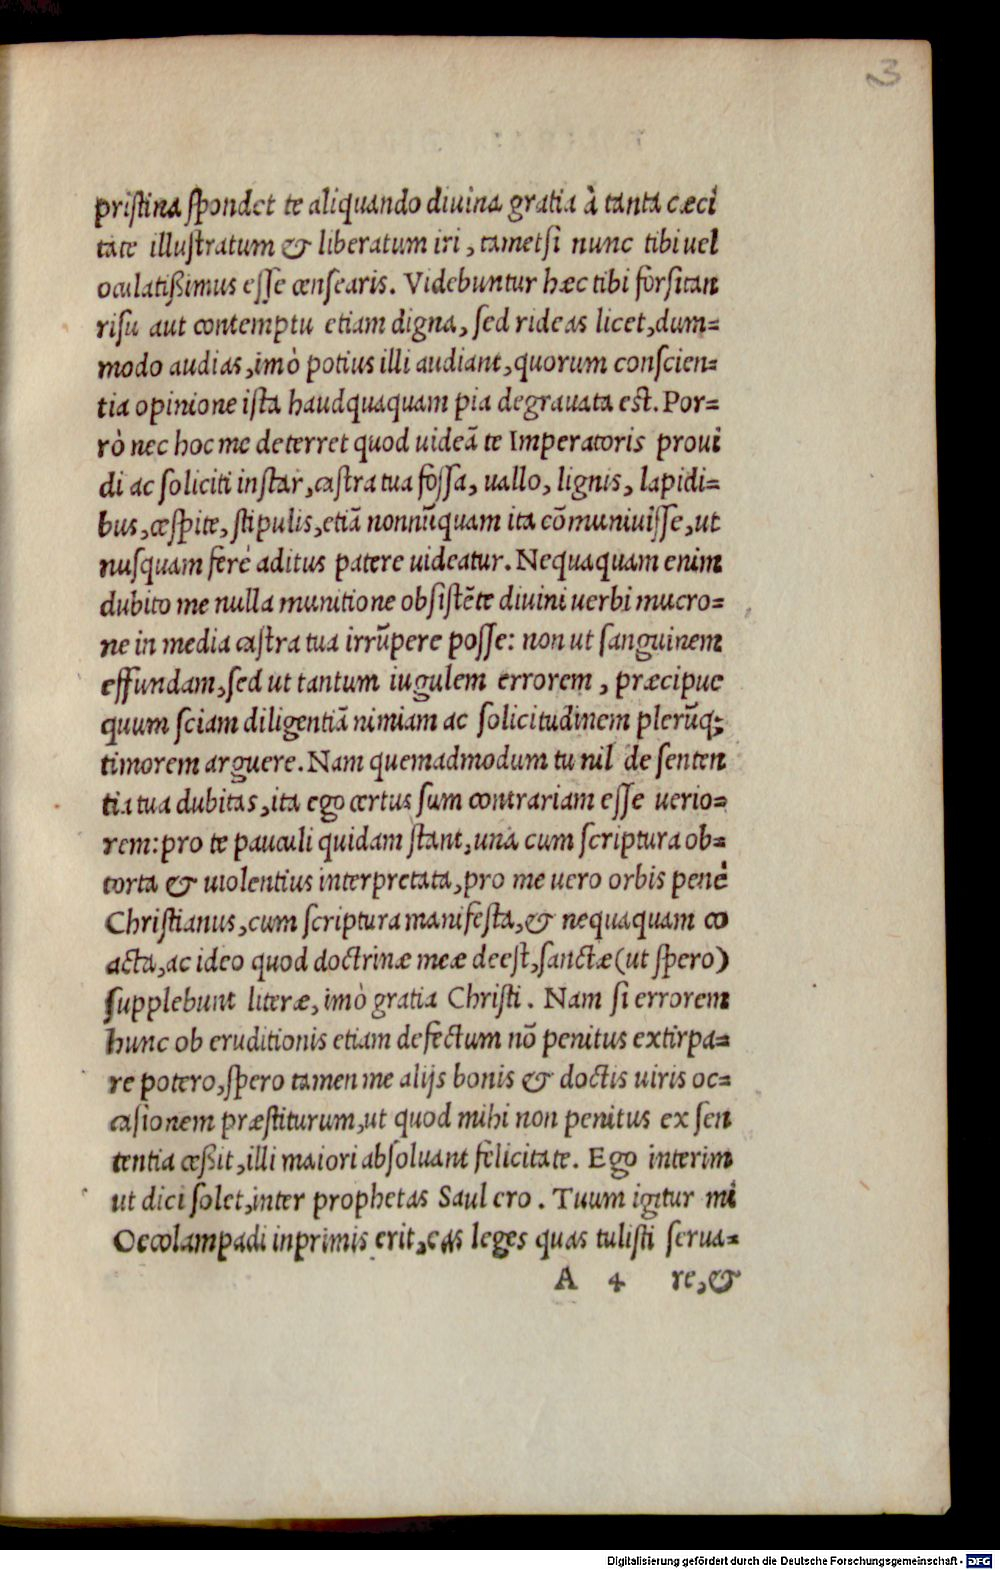 3
pristina spondet te aliquando diuina gratia à tanta cæci
tate illustratum & liberatum iri, tametsi nunc tibi uel
oculatißimus esse censearis. Videbuntur hæc tibi forsitan
risu aut contemptu etiam digna, sed rideas licet, dum=
modo audias, imò potius illi audiant, quorum conscien=
tia opinione ista haudquaquam pia degrauata est. Por=
rò nec hoc me deterret quod uideā te Imperatoris proui
di ac soliciti instar, castra tua fossa, uallo, lignis, lapidi=
bus, cæspite, stipulis, etiā nonnūquam ita cōmuniuisse, ut
nusquam ferè aditus patere uideatur. Nequaquam enim
dubito me nulla munitione obsistēte diuini uerbi mucro=
ne in media castra tua irrūpere posse: non ut sanguinem
effundam, sed ut tantum iugulem errorem, præcipue
quum sciam diligentiā nimiam ac solicitudinem plerūq;
timorem arguere. Nam quemadmodum tu nil de senten
tia tua dubitas, ita ego certus sum contrariam esse uerio=
rem: pro te pauculi quidam stant, una cum scriptura ob=
torta & uiolentius interpretata, pro me uero orbis penè
Christianus, cum scriptura manifesta, & nequaquam co
acta, ac ideo quod doctrinæ meæ deest, sanctæ (ut spero)
supplebunt literæ, imò gratia Christi. Nam si errorem
hunc ob eruditionis etiam defectum nō penitus extirpa=
re potero, spero tamen me alijs bonis & doctis uiris oc=
casionem præstiturum, ut quod mihi non penitus ex sen
tentia ceßit, illi maiori absoluant felicitate. Ego interim
ut dici solet, inter prophetas Saul ero. Tuum igitur mi
Oecolampadi inprimis erit, eas leges quas tulisti serua=
A 4 re, &
Digitalisierung gefördert durch die Deutsche Forschungsgemeinschaft - DFG